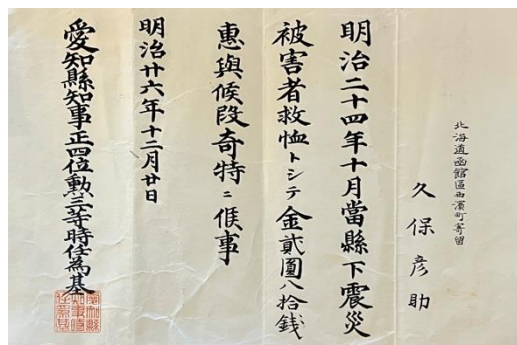 北海道函館區西濱町寄留
久保彦助
明治二十四年十月當縣下震災
被害者救恤トシテ金貳圓八拾銭
惠與候段奇特ニ候事
明治廿六年十二月廿日
愛知縣知事正四位勲三等時任為基
愛知縣
知事時
任為基